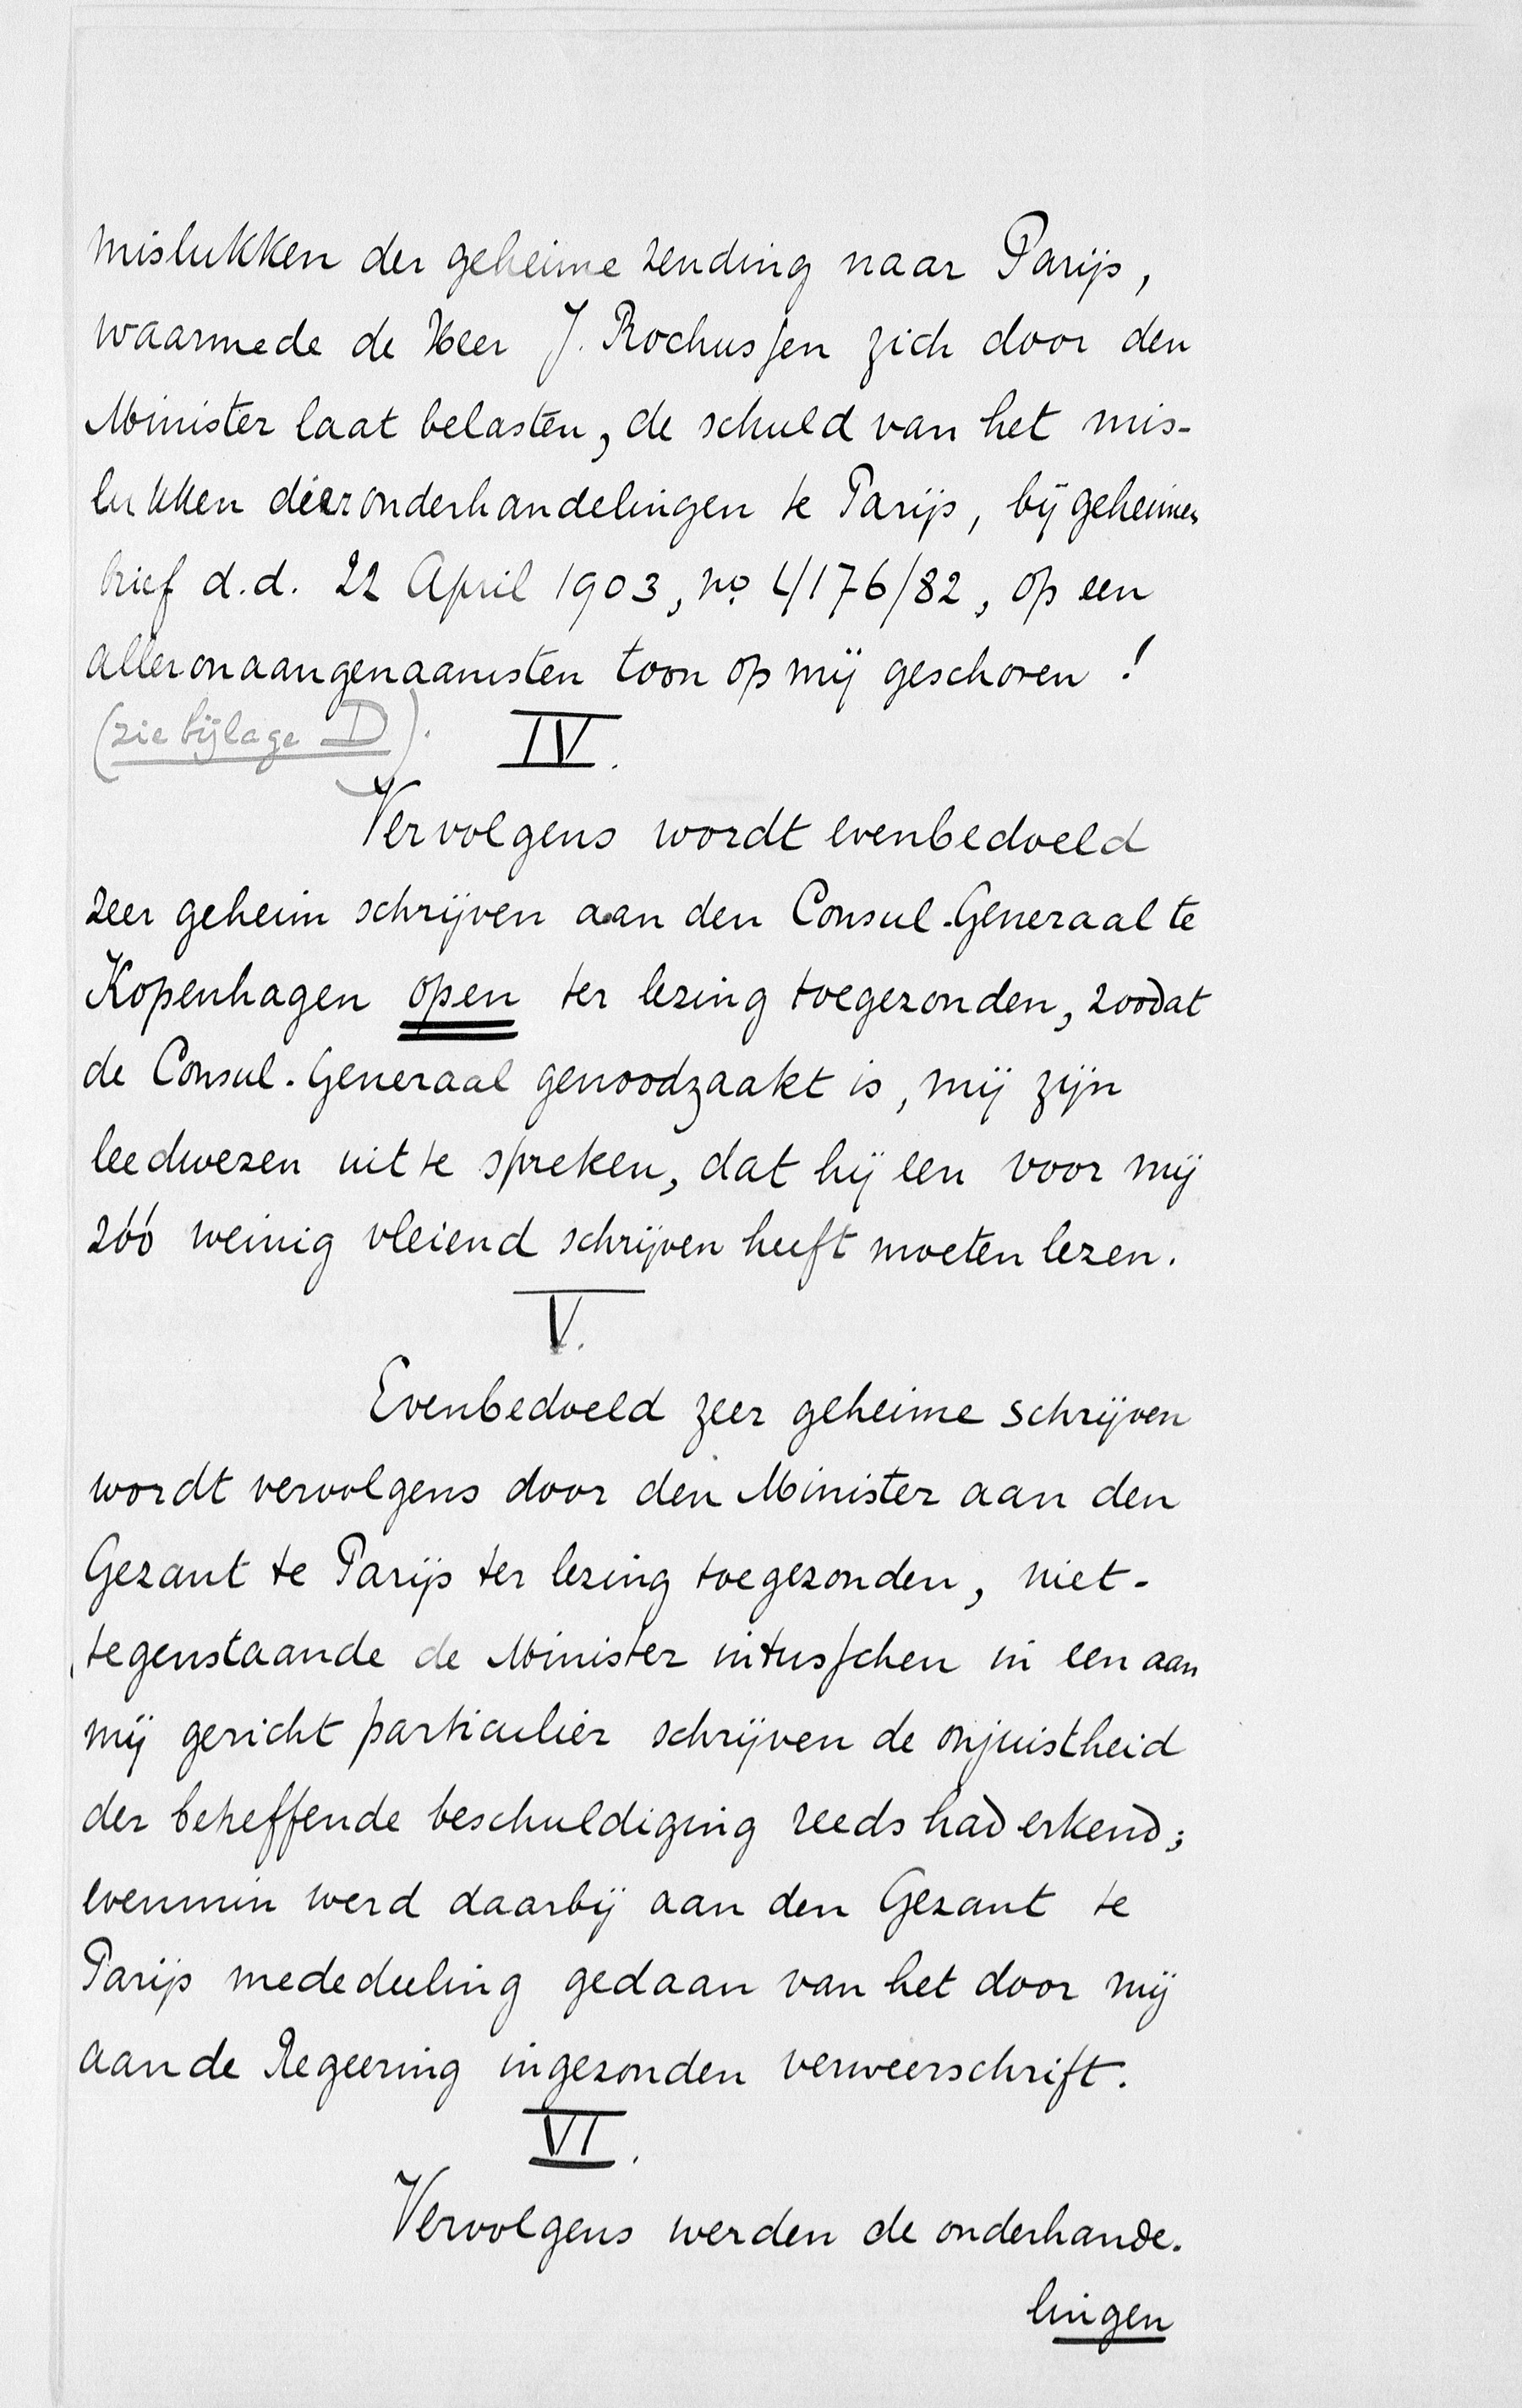 mislukken der geheime zending naar Parijs,
waarmede de Heer J. Rochussen zich door den
Minister laat belasten, de schuld van het mis-
lukken dier onderhandelingen te Parijs, bij geheimen
brief d.d. 22 April 1903, no 4/176/82, op een
alleronaangenaamsten toon op mij geschoven!
(zie bijlage D).
IV.
Vervolgens wordt evenbedoeld
zeer geheim schrijven aan den Consul-Generaal te
Kopenhagen open ter lezing toegezonden, zoodat
de Consul-Generaal genoodzaakt is, mij zijn
leedwezen uit te spreken, dat hij een voor mij
zóó weinig vleiend schrijven heeft moeten lezen.
V.
Evenbedoeld zeer geheime schrijven
wordt vervolgens door den Minister aan den
Gezant te Parijs ter lezing toegezonden, niet-
tegenstaande de Minister intusschen in een aan
mij gericht particulier schrijven de onjuistheid
der betreffende beschuldiging reeds had erkend;
evenmin werd daarbij aan den Gezant te
Parijs mededeeling gedaan van het door mij
aan de Regeering ingezonden verweerschrift.
VI.
Vervolgens werden de onderhande-
lingen